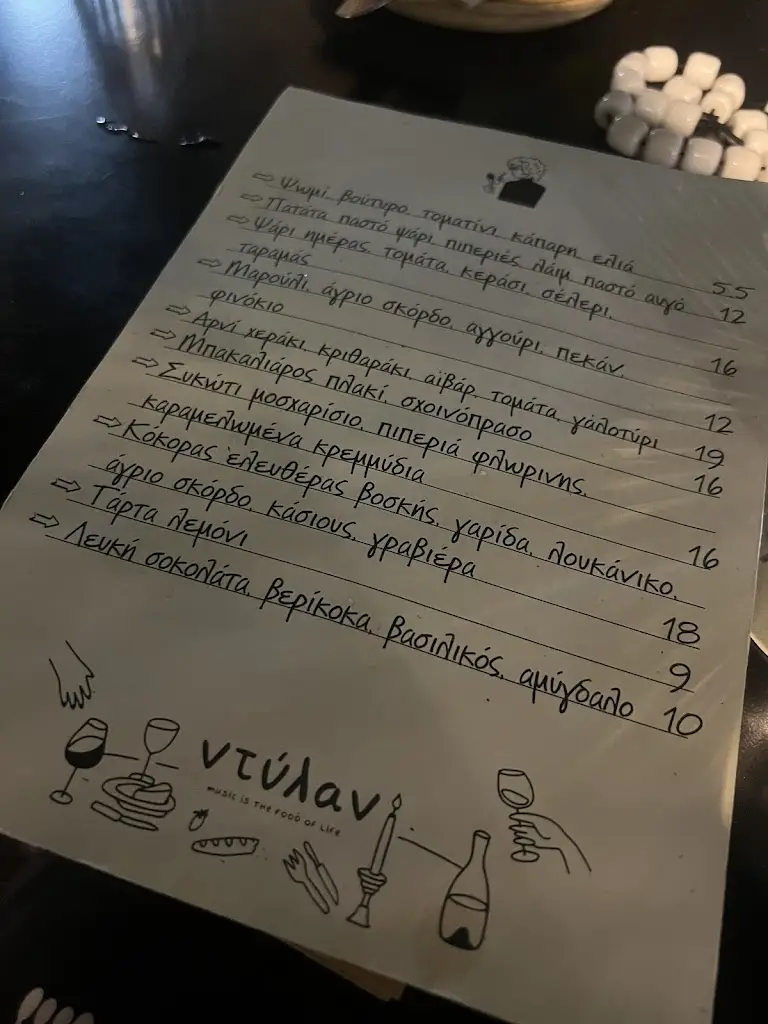 ⇨ Ψωμί βούτυρο, τοματίνι κάπαρη ελιά 5.5
⇨ Πατάτα παστό ψάρι πιπεριές, λάιμ παστό αυγό 12
⇨ Ψάρι ημέρας, τομάτα, κεράσι, σέλερι,
ταραμάς 16
⇨ Μαρούλι, άγριο σκόρδο, αγγούρι, πεκάν,
φινόκιο 12
⇨ Αρνί χεράκι, κριθαράκι, αϊβάρ, τομάτα, γαλοτύρι 19
⇨ Μπακαλιάρος πλακί, σχοινόπρασο 16
⇨ Συκώτι μοσχαρίσιο, πιπεριά φλωρινης,
καραμελωμένα κρεμμύδια 16
⇨ Κόκορας ελευθέρας βοσκής, γαρίδα, λουκάνικο,
άγριο σκόρδο, κάσιους, γραβιέρα 18
⇨ Τάρτα λεμόνι 9
⇨ Λευκή σοκολάτα, βερίκοκα, βασιλικός, αμύγδαλο 10
ντύλαν
MUSIC IS THE FOOD OF LIFE